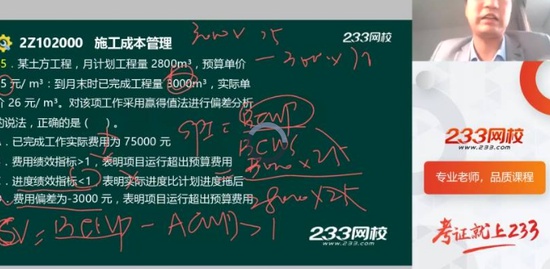 2Z102000 施工成本管理
233网校
www.233.com
5．某土方工程，月计划工程量 2800m³，预算单价
5 元/ m³：到月末时已完成工程量 3000m³，实际单
价 26 元/ m³。对该项工作采用赢得值法进行偏差分析
的说法，正确的是（ ）。
．已完成工作实际费用为 75000 元
．费用绩效指标>1，表明项目运行超出预算费用
．进度绩效指标<1，表明实际进度比计划进度拖后
．费用偏差为-3000 元，表明项目运行超出预算费用
SPI =
BCWP
BCWS
233网校
233网校
www.233.com
专业老师，品质课程
考证就上233